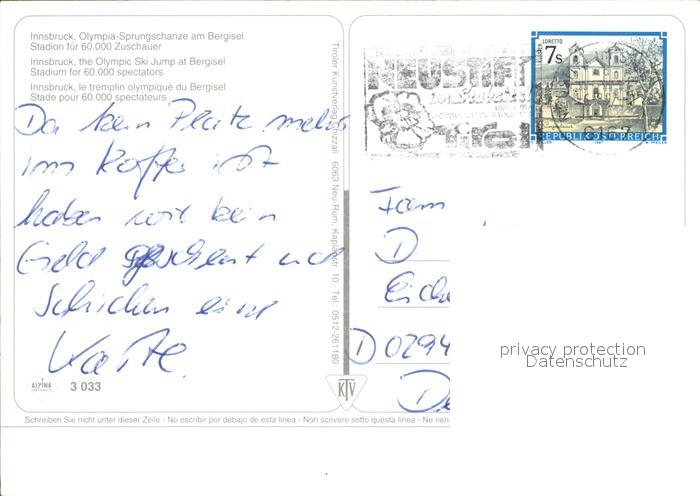 Innsbruck, Olympia-Sprungschanze am Bergisel
Stadion für 60.000 Zuschauer
Innsbruck, the Olympic Ski Jump at Bergisel
Stadium for 60.000 spectators
Innsbruck, le tremplin olympique du Bergisel
Stade pour 60.000 spectateurs
Da kein Platz mehr
im Koffer ist
haben wir kein
Geld und
Schicken eine
Karte.
ALPINA
3 033
Tiroler Kunstverlag Chizzali · 6063 Neu-Rum, Kaplanstr. 10 · Tel. 0512-261180
KTV
NEUSTIFT
im Stubaital
Tirol
LORETTO
7s
REPUBLIK ÖSTERREICH
1987
Fam
D
Eiche
D 0294
privacy protection
Datenschutz
Schreiben Sie nicht unter dieser Zeile - No escribir por debajo de esta linea - Non scrivere sotto questa linea - Ne rien